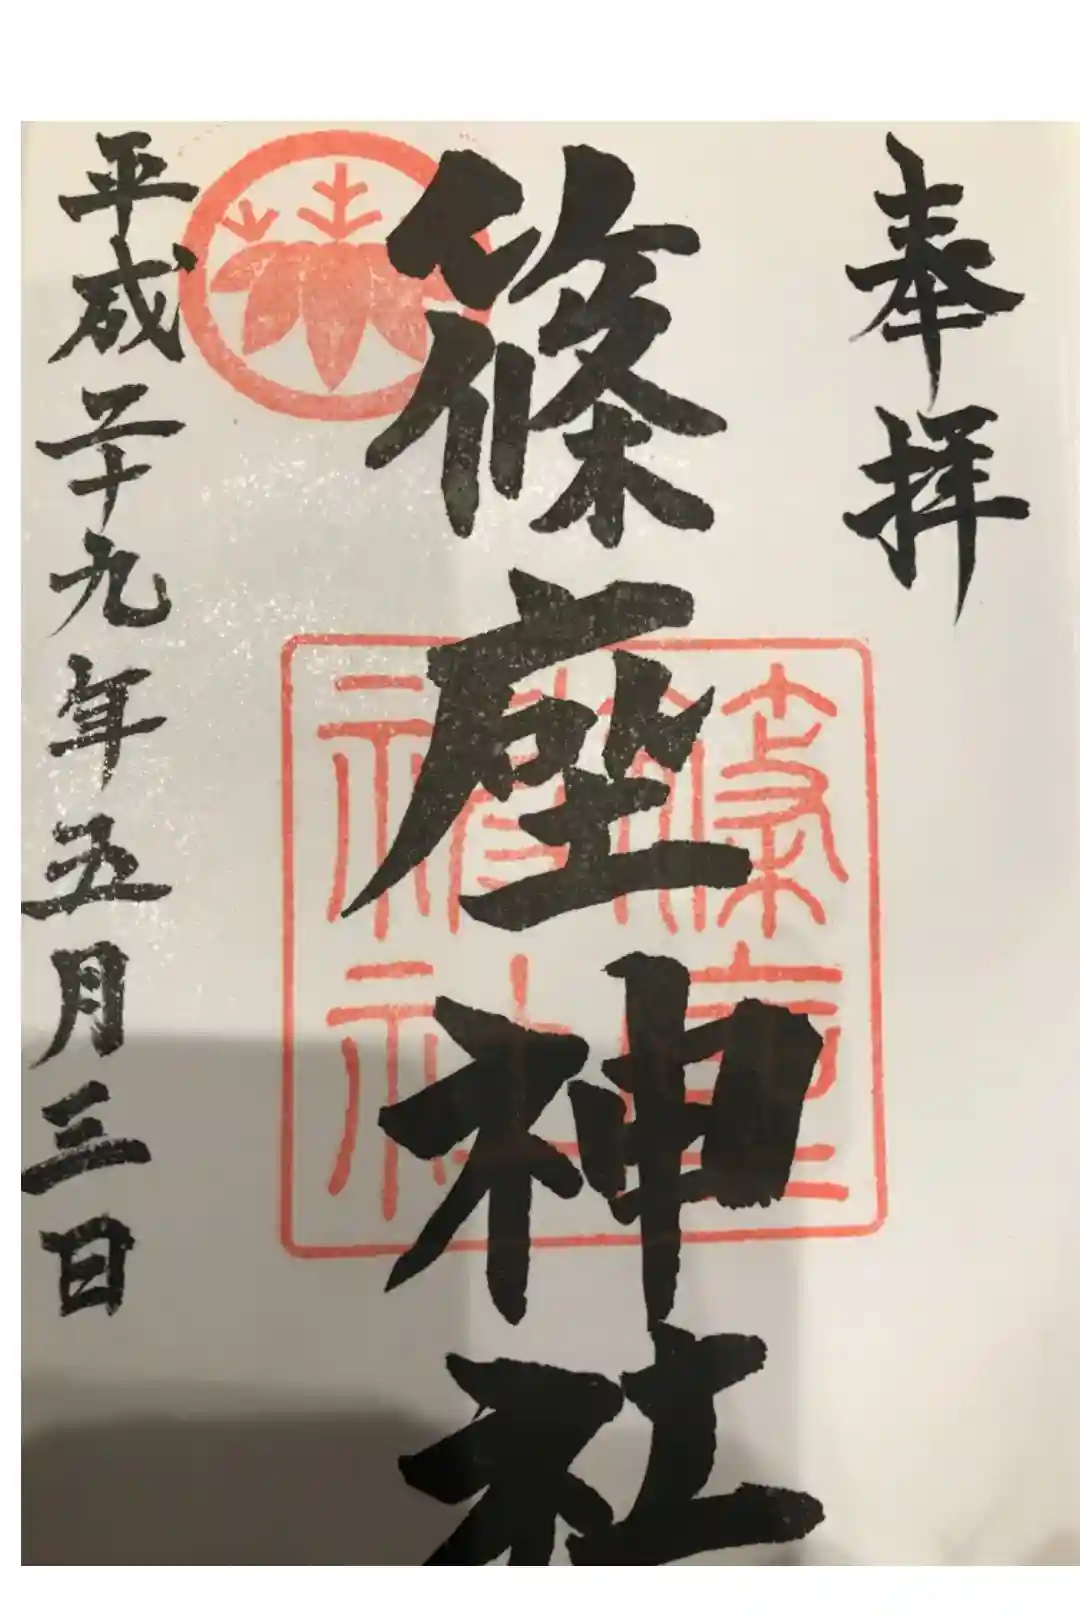 奉拝
篠座神社
平成二十九年五月三日
篠座
神社